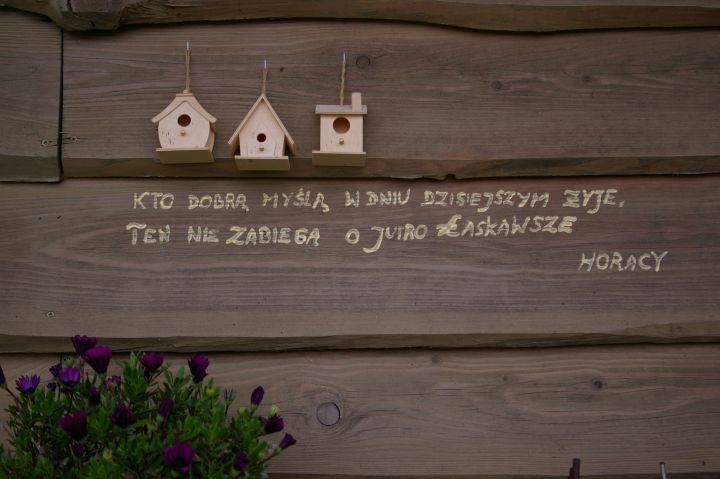 KTO DOBRĄ MYŚLĄ W DNIU DZISIEJSZYM ŻYJE,
TEN NIE ZABIEGA O JUTRO ŁASKAWSZE
HORACY